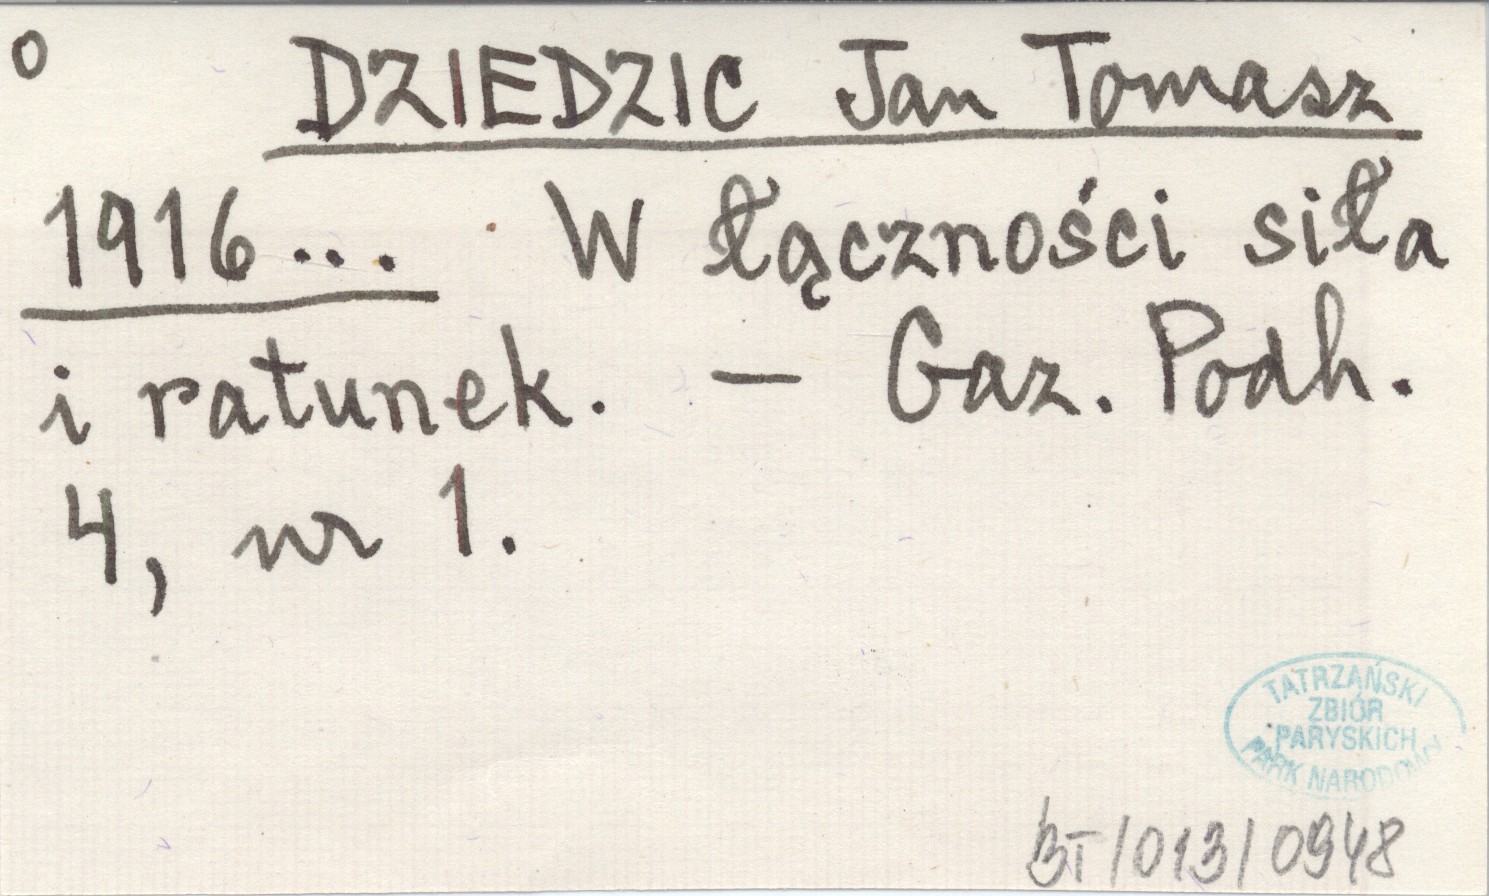 o DZIEDZIC Jan Tomasz
1916... W łączności siła
i ratunek. — Gaz. Podh.
4, nr 1.
TATRZAŃSKI
ZBIÓR
PARYSKICH
PARK NARODOWY
BT/013/0948